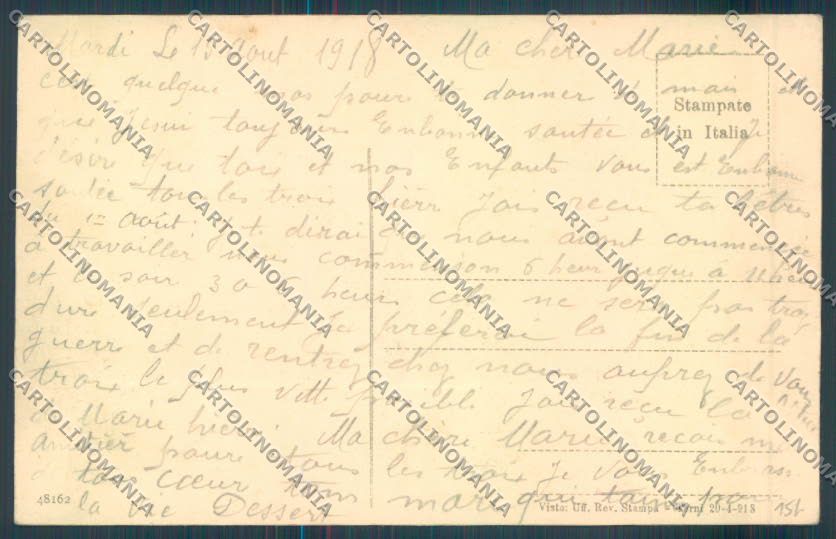 Mardi Le 13 Aout 1918 Ma cher Marie
cest quelque mos pour te donner de mais et
que Jesui toujours Enbonne santée et Je
désire que toie et nos Enfants vous est Enbonne
santée tous les trois hierr Jais reçu ta lettres
du 1er août je te dirai que nous avont commencé
a travailler nous commenson 6 heur jusque à
et le soir 3 a 6 heure cela ne sera pas trop
dure seulement Je préferai la fin de la
guerre et de rentrez chez nous auprez de vous
trois le plus vitte posible Jais reçu la
a Marie hierr. Ma chere Marie reçois mes
amitier pour tous les trois Je vous Enbrasse
de tout cœur ton mari qui taime pour
la vie Dessert
Stampate
in Italia
48162
Visto: Uff. Rev. Stampa - Terni 20-4-918
151
CARTOLINOMANIA